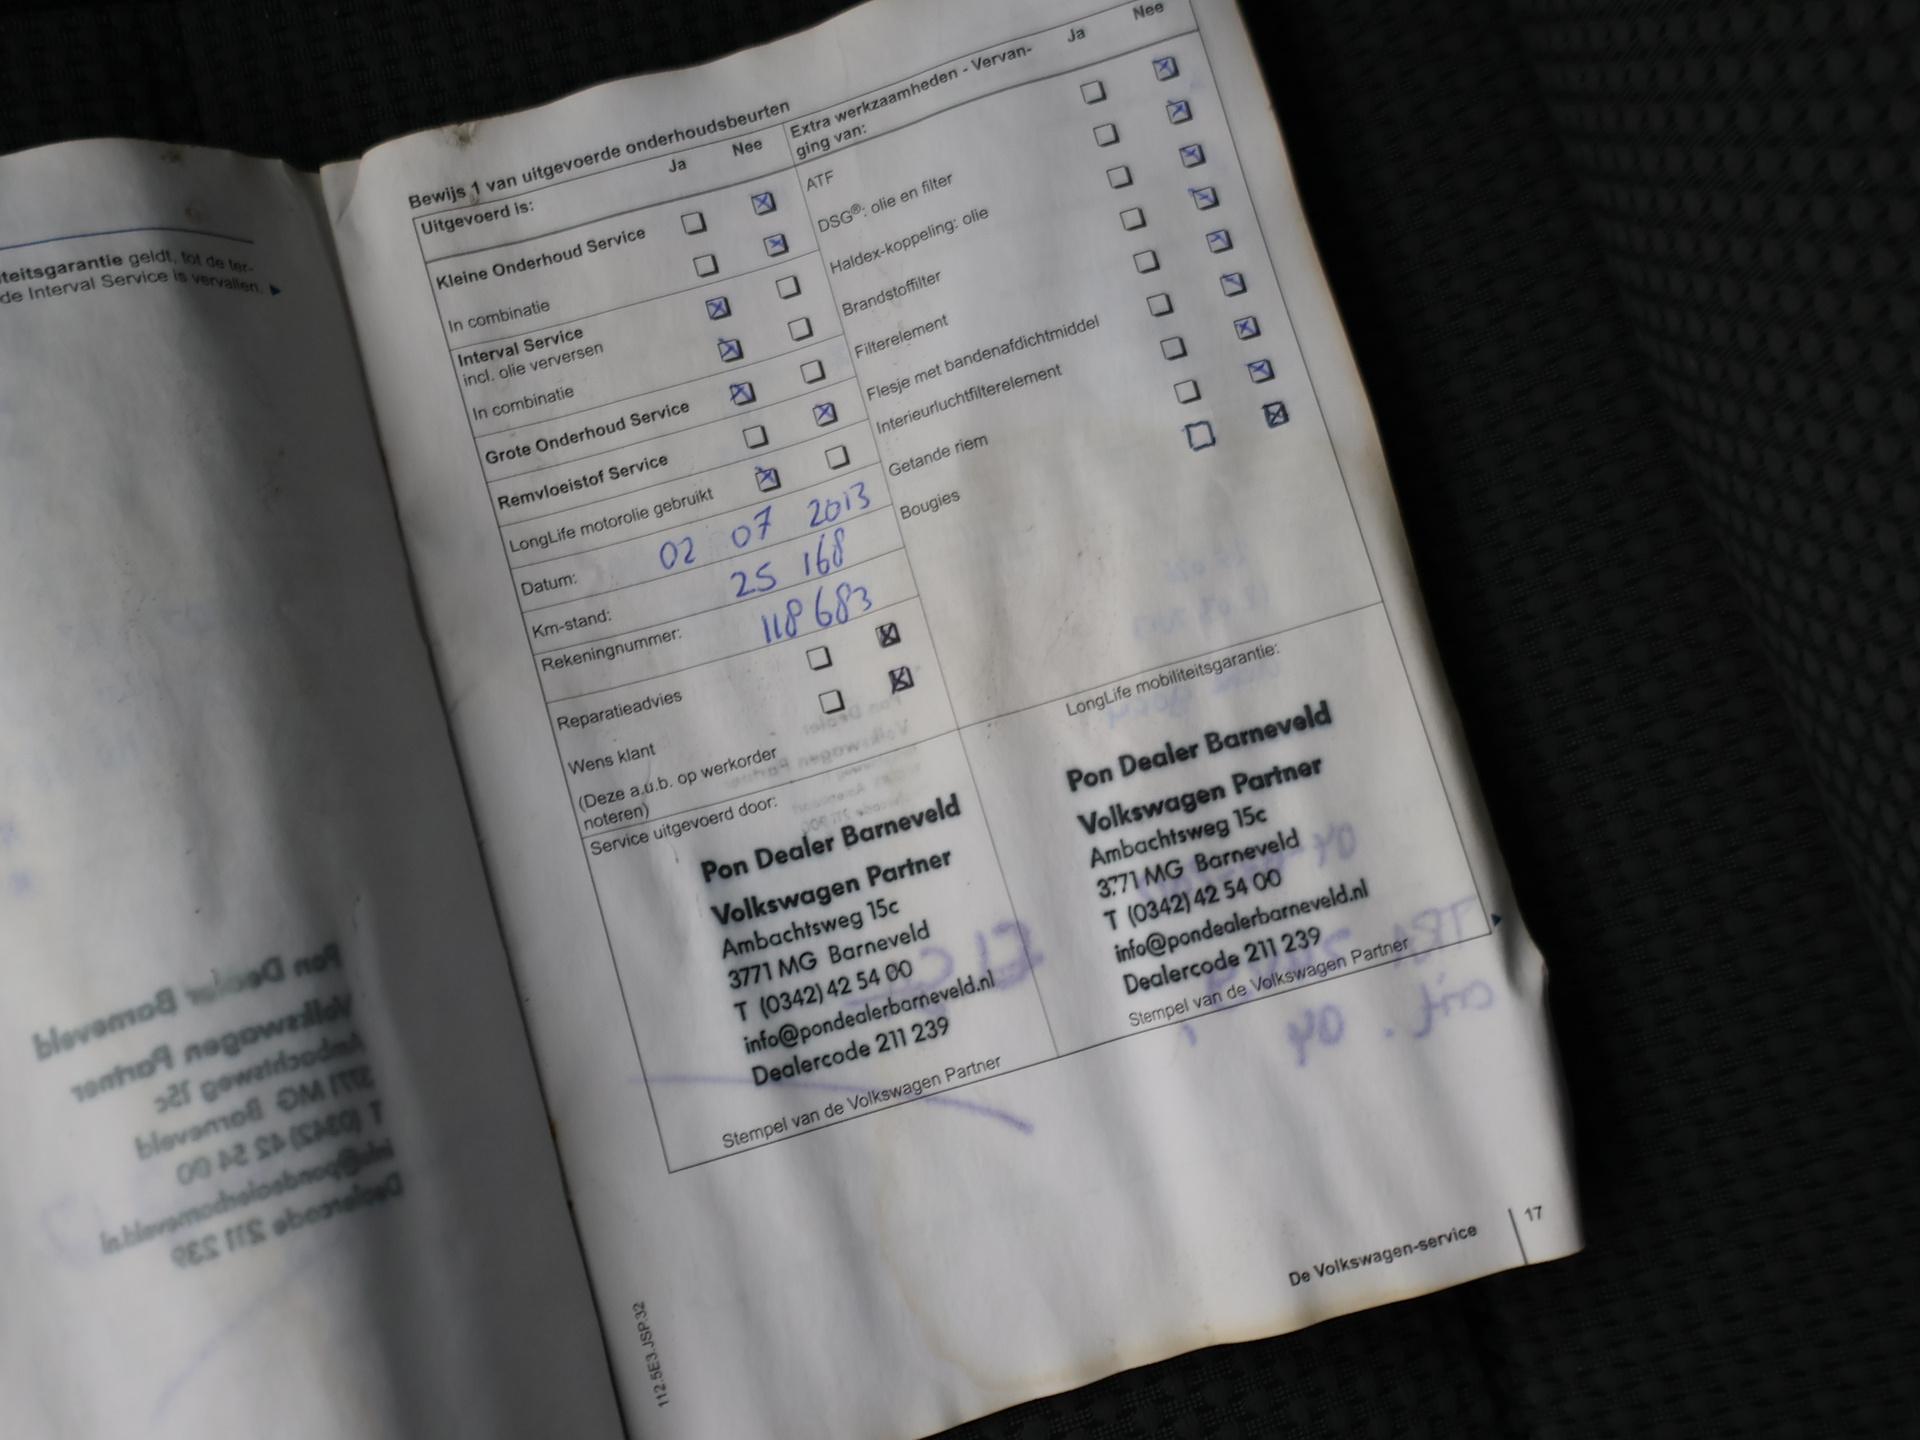 teitsgarantie geldt, tot de ter-
de Interval Service is vervallen.
Bewijs 1 van uitgevoerde onderhoudsbeurten
Uitgevoerd is: Ja Nee
Kleine Onderhoud Service
In combinatie
Interval Service
incl. olie verversen
In combinatie
Grote Onderhoud Service
Remvloeistof Service
LongLife motorolie gebruikt
Datum: 02 07 2013
Km-stand: 25 168
Rekeningnummer: 118 683
Reparatieadvies
Wens klant
(Deze a.u.b. op werkorder
noteren)
Extra werkzaamheden - Vervan-
ging van: Ja Nee
ATF
DSG®: olie en filter
Haldex-koppeling: olie
Brandstoffilter
Filterelement
Flesje met bandenafdichtmiddel
Interieurluchtfilterelement
Getande riem
Bougies
Service uitgevoerd door:
Pon Dealer Barneveld
Volkswagen Partner
Ambachtsweg 15c
3771 MG Barneveld
T (0342) 42 54 00
info@pondealerbarneveld.nl
Dealercode 211 239
Stempel van de Volkswagen Partner
LongLife mobiliteitsgarantie:
Pon Dealer Barneveld
Volkswagen Partner
Ambachtsweg 15c
3771 MG Barneveld
T (0342) 42 54 00
info@pondealerbarneveld.nl
Dealercode 211 239
Stempel van de Volkswagen Partner
112.5E3.JSP.32
De Volkswagen-service 17